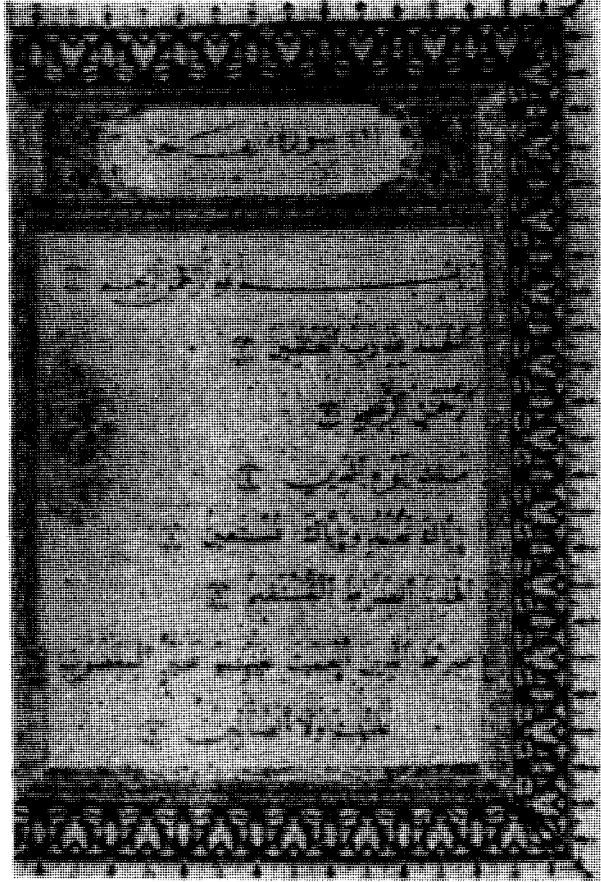 سورة
بسم الله الرحمن الرحيم
الحمد لله رب العلمين
الرحمن الرحيم
ملك يوم الدين
اياك نعبد واياك نستعين
اهدنا الصراط المستقيم
صراط الذين انعمت عليهم غير المغضوب
عليهم ولا الضالين